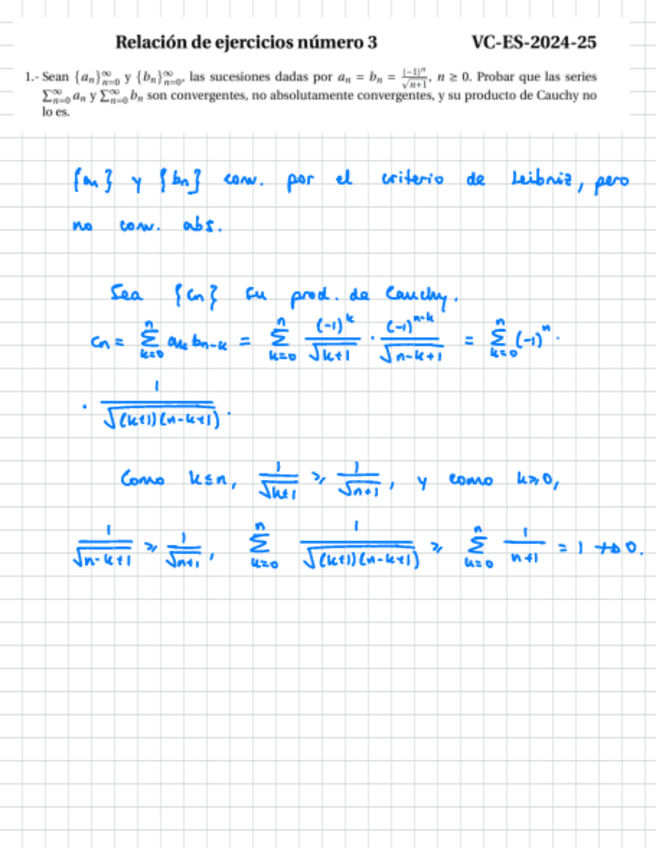 Relación de ejercicios número 3 VC-ES-2024-25
1.- Sean {a_n}_{n=0}^∞ y {b_n}_{n=0}^∞, las sucesiones dadas por a_n = b_n = (-1)^n/√(n+1), n ≥ 0. Probar que las series
∑_{n=0}^∞ a_n y ∑_{n=0}^∞ b_n son convergentes, no absolutamente convergentes, y su producto de Cauchy no
lo es.
{an} y {bn} conv. por el criterio de Leibniz, pero
no conv. abs.
Sea {cn} su prod. de Cauchy.
cn = ∑_{k=0}^n ak bn-k = ∑_{k=0}^n (-1)^k/√(k+1) · (-1)^{n-k}/√(n-k+1) = ∑_{k=0}^n (-1)^n ·
· 1/√((k+1)(n-k+1)) .
Como k≤n, 1/√(k+1) ≥ 1/√(n+1), y como k≥0,
1/√(n-k+1) ≥ 1/√(n+1), ∑_{k=0}^n 1/√((k+1)(n-k+1)) ≥ ∑_{k=0}^n 1/(n+1) = 1 ↛ 0.